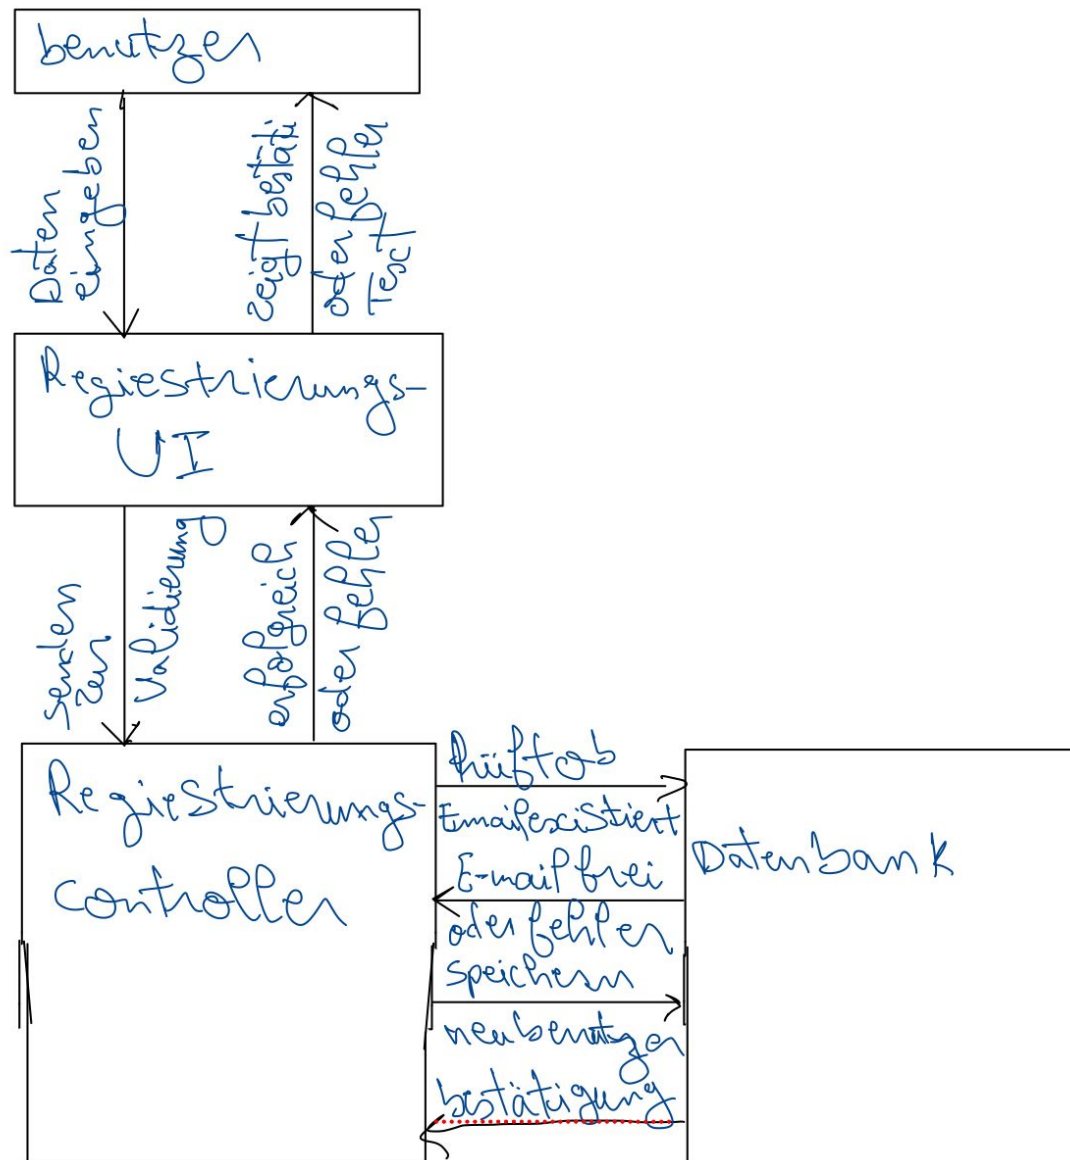 benutzer
Daten
eingeben
zeigt bestäti
oder fehler
Text
Regiestrierungs-
UI
senden
zur
Validierung
erfolgreich
oder fehler
Regiestrierungs-
controller
Prüft ob
Email existiert
E-mail frei
oder fehler
speichern
neu benutzer
bestätigung
Datenbank